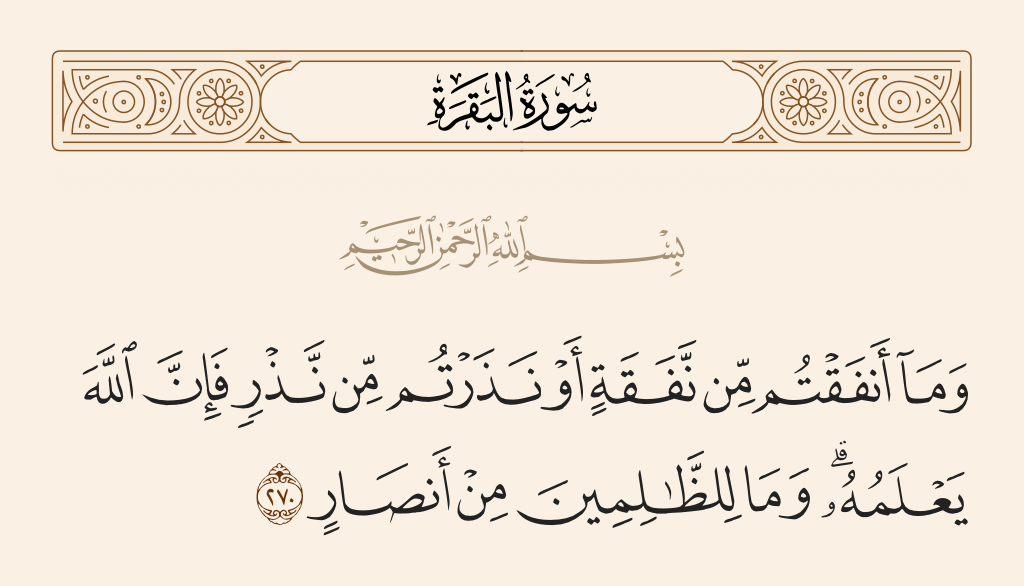 سُورَةُ البَقَرَةِ
بِسْمِ ٱللَّهِ ٱلرَّحْمَٰنِ ٱلرَّحِيمِ
وَمَآ أَنفَقْتُم مِّن نَّفَقَةٍ أَوْ نَذَرْتُم مِّن نَّذْرٍ فَإِنَّ ٱللَّهَ
يَعْلَمُهُۥ ۗ وَمَا لِلظَّٰلِمِينَ مِنْ أَنصَارٍ ٢٧٠